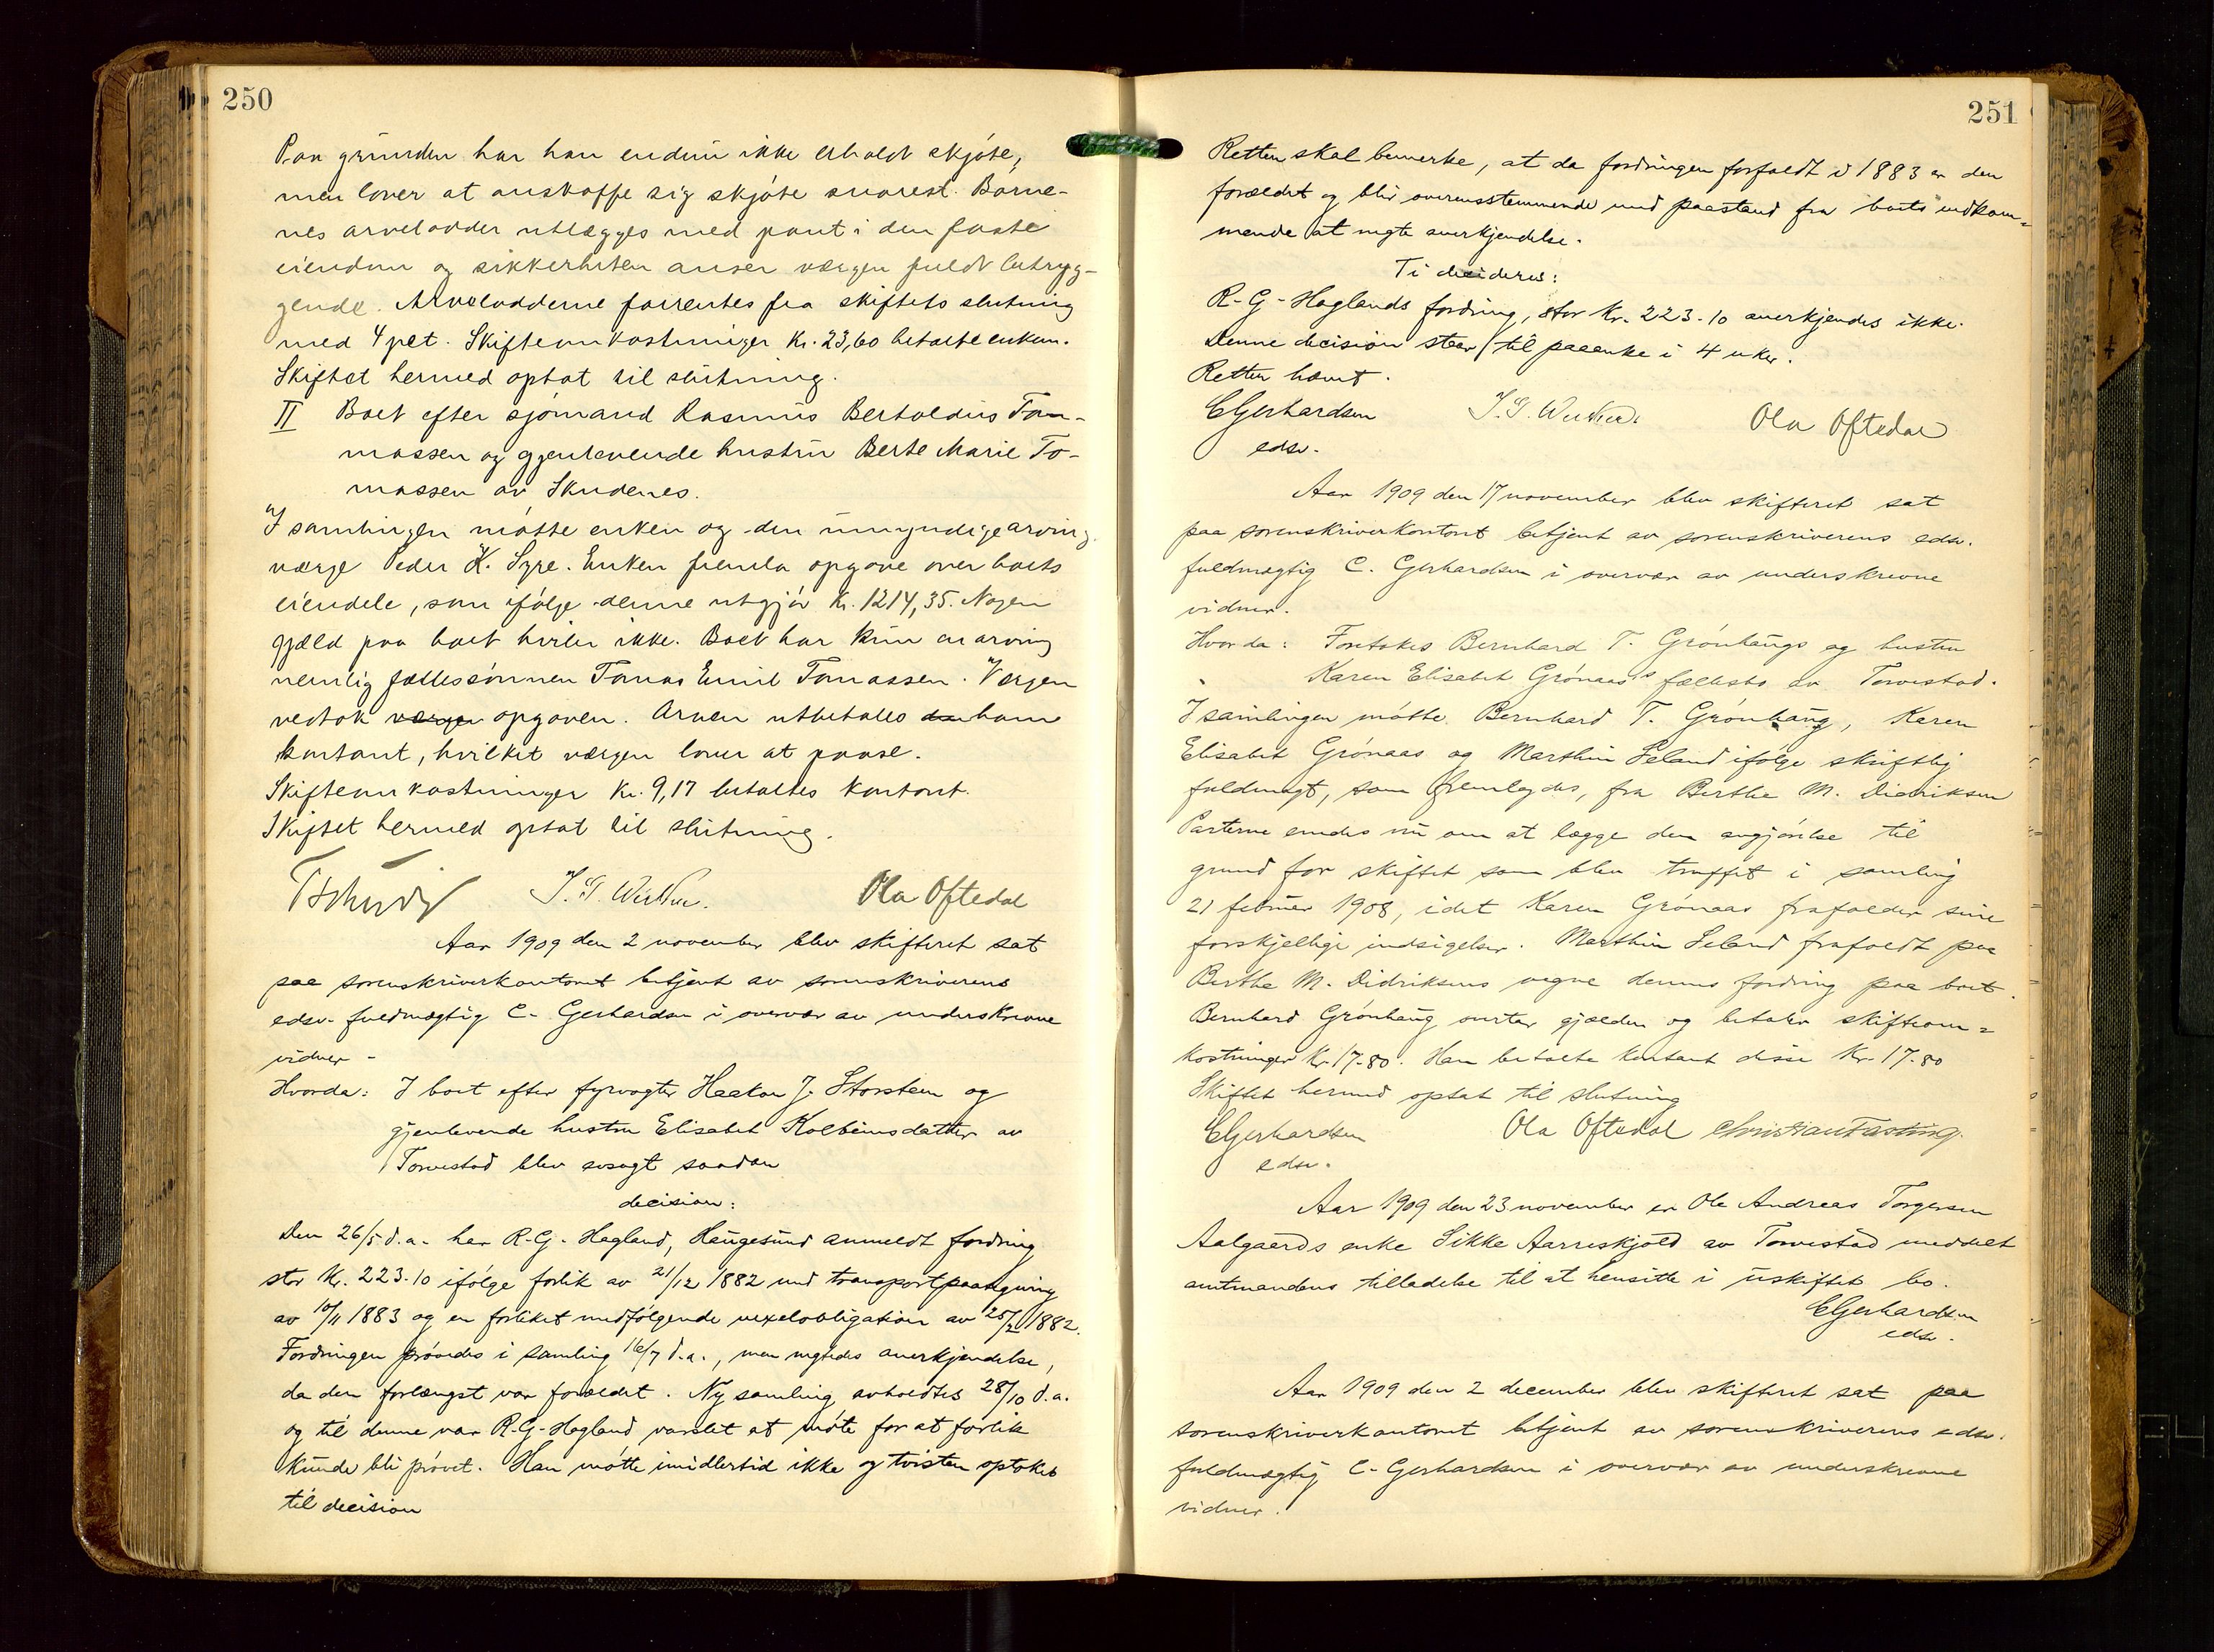 250
Paa grunden har han endnu ikke erholdt skjøte,
men lover at anskaffe sig skjøte snarest. Barne-
nes arvelodder utlægges med pant i den faste
eiendom og sikkerheten anser værgen fuldt betryg-
gende. Arvelodderne forrentes fra skiftets slutning
med 4 pct. Skifteomkostninger Kr. 23,60 betalte enken.
Skiftet hermed optat til slutning.
II Boet efter sjømand Rasmus Bertoldus Tom-
massen og gjenlevende hustru Berte Marie To-
massen av Skudenes.
I samlingen møtte enken og den umyndige arvings
værge Peder K. Syre. Enken fremla opgave over boets
eiendele, som ifølge denne utgjør Kr. 1214,35. Nogen
gjæld paa boet hviler ikke. Boet har kun en arving
nemlig fællessønnen Tomas Emil Tomassen. Værgen
vedtok værgen opgaven. Arven utbetales den ham
kontant, hvilket værgen lover at paase.
Skifteomkostninger Kr. 9,17 betaltes kontant.
Skiftet hermed optat til slutning.
Ola Oftedal
Aar 1909 den 2 november blev skifteret sat
paa sorenskriverkontoret betjent av sorenskriverens
edsv. fuldmægtig C. Gerhardsen i overvær av underskrevne
vidner -
Hvorda: I boet efter fyrvogter Haakon J. Storsteen og
gjenlevende hustru Elisabet Kolbeinsdatter av
Torvestad blev avsagt saadan
decision:
Den 26/5 d.a. har R. G. Hagland, Haugesund anmeldt fordring
stor Kr. 223.10 ifølge forlik av 21/12 1882 med transportpaategning
av 10/11 1883 og en forliket medfølgende vexelobligation av 25/2 1882.
Fordringen prøvedes i samling 16/7 d.a., men negtedes anerkjendelse,
da den forlængst var forældet. Ny samling avholdtes 28/10 d.a.
og til denne var R. G. Hagland varslet at møte for at forlik
kunde bli prøvet. Han møtte imidlertid ikke og tvisten optokes
til decision
251
Retten skal bemerke, at da fordringen forfaldt i 1883 er den
forældet og blir overensstemmende med paastand fra boets vedkom-
mende at negte anerkjendelse.
Ti decideres:
R. G. Haglands fordring, stor Kr. 223.10 anerkjendes ikke.
Denne decision staar til paaanke i 4 uker.
Retten hævet.
CGerhardsen Ola Oftedal
edsv.
Aar 1909 den 17 november blev skifteret sat
paa sorenskriverkontoret betjent av sorenskriverens edsv.
fuldmægtig C. Gerhardsen i overvær av underskrevne
vidner.
Hvorda: Foretokes Bernhard T. Grønhaugs og hustru
Karen Elisabet Grønaas's fællesbo av Torvestad.
I samlingen møtte Bernhard T. Grønhaug, Karen
Elisabet Grønaas og Marthin Seland ifølge skriftlig
fuldmagt, som fremlagdes, fra Berthe M. Didriksen
Parterne enedes nu om at lægge den avgjørelse til
grund for skiftet som blev truffet i samling
21 februar 1908, idet Karen Grønaas frafalder sine
forskjellige indsigelser. Marthin Seland frafaldt paa
Berthe M. Didriksens vegne dennes fordring paa boet.
Bernhard Grønhaug overtar gjælden og betaler skifteom-
kostninger Kr. 17.80. Han betalte kontant disse Kr. 17.80
Skiftet hermed optat til slutning
CGerhardsen Ola Oftedal Christian Fasting.
edsv.
Aar 1909 den 23 november er Ole Andreas Torgersen
Aalgaards enke Sikke Aarreskjold av Torvestad meddelt
amtmandens tilladelse til at hensitte i uskiftet bo.
CGerhardsen
edsv.
Aar 1909 den 2 december blev skifteret sat paa
sorenskriverkontoret betjent av sorenskriverens edsv.
fuldmægtig C. Gerhardsen i overvær av underskrevne
vidner.